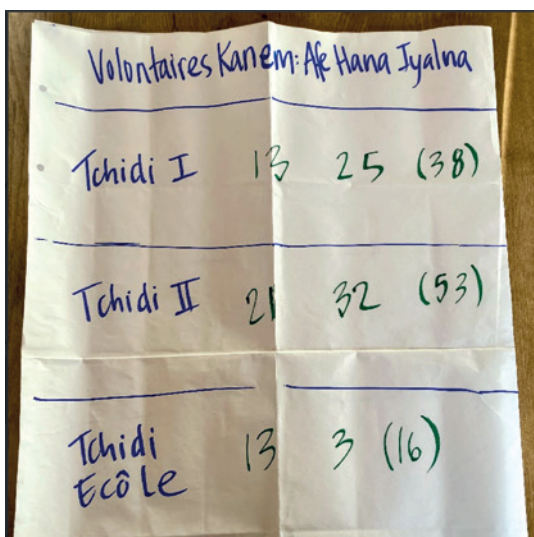 Volontaires Kanem: Afe Hana Iyalna
Tchidi I 13 25 (38)
Tchidi II 21 32 (53)
Tchidi
Ecôle 13 3 (16)